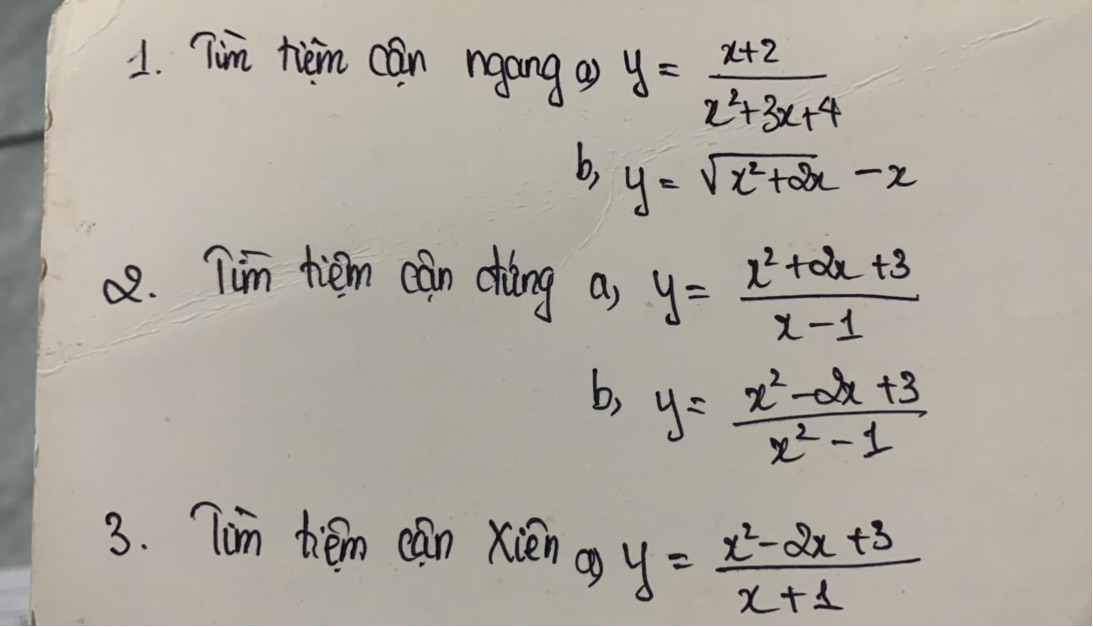 1. Tìm tiệm cận ngang a) y = \frac{x+2}{x^2+3x+4}
b, y = \sqrt{x^2+2x} - x
2. Tìm tiệm cận đứng a, y = \frac{x^2+2x+3}{x-1}
b, y = \frac{x^2-2x+3}{x^2-1}
3. Tìm tiệm cận xiên a) y = \frac{x^2-2x+3}{x+1}